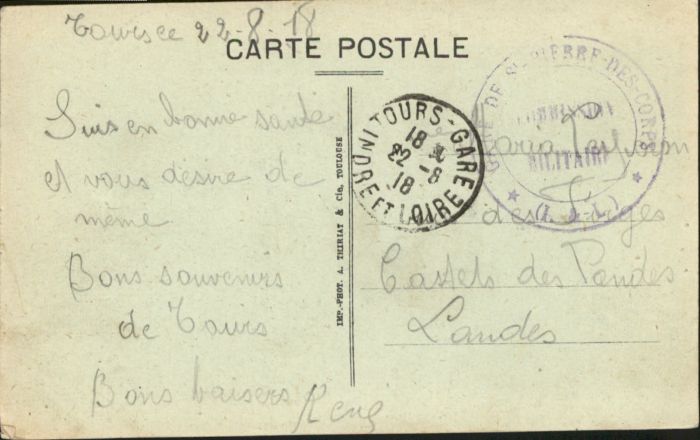 Tours ce 22-8-18
CARTE POSTALE
Suis en bonne santé
et vous désire de
même
Bons souvenirs
de Tours
Bons baisers
René
IMP.-PHOT. A. THIRIAT & Cie, TOULOUSE
TOURS-GARE
18
22-8
18
INDRE ET LOIRE
GARE DE St PIERRE-DES-CORPS
COMMISSION
MILITAIRE
(I.-&-L.)
Maria
des Forges
Castets des Landes
Landes